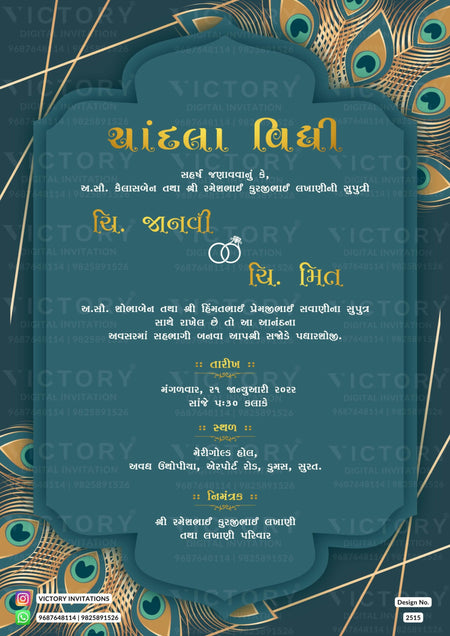 ચાંદલા વિધી
સહર્ષ જણાવવાનું કે,
અ.સૌ. કૈલાસબેન તથા શ્રી રમેશભાઈ કુરજીભાઈ લખાણીની સુપુત્રી
ચિ. જાનવી
ચિ. મિત
અ.સૌ. શોભાબેન તથા શ્રી હિંમતભાઈ પ્રેમજીભાઈ સવાણીના સુપુત્ર
સાથે રાખેલ છે તો આ આનંદના
અવસરમાં સહભાગી બનવા આપશ્રી સજોડે પધારશોજી.
:: તારીખ ::
મંગળવાર, ૨૧ જાન્યુઆરી ૨૦૨૨
સાંજે ૫:૩૦ કલાકે
:: સ્થળ ::
મેરીગોલ્ડ હોલ,
અવધ ઉથોપીયા, એરપોર્ટ રોડ, ડુમસ, સુરત.
:: નિમંત્રક ::
શ્રી રમેશભાઈ કુરજીભાઈ લખાણી
તથા લખાણી પરિવાર
VICTORY INVITATIONS
9687648114 | 9825891526
Design No.
2515
VICTORY
DIGITAL INVITATION
9687648114 | 9825891526